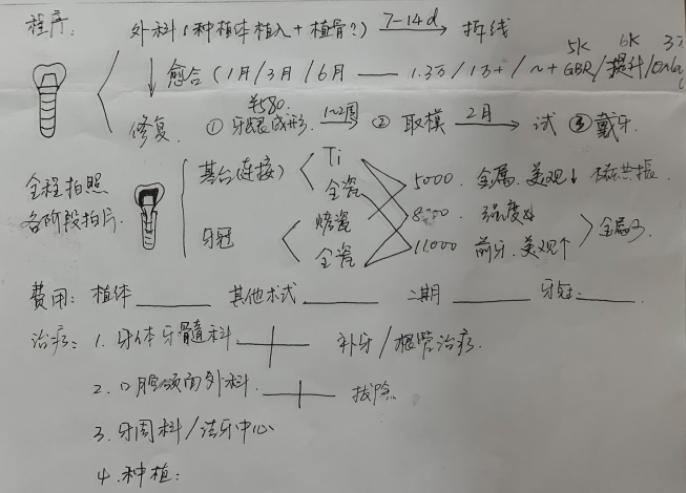 程序: 外科(种植体植入+植骨?) 7-14d 拆线
5K 6K
愈合(1月/3月/6月 — 1.3万/1万+/~+GBR/提升/Onlay
¥580.
修复. ① 牙龈成形. 1~2周 ② 取模 2月 试 ③ 戴牙.
全程拍照
各阶段拍片.
基台(连接) Ti 全瓷
牙冠 烤瓷 全瓷
5000. 金属. 美观↓ 核共振.
8000. 强度
11000 前牙. 美观↑
费用: 植体____ 其他术式____ 二期____ 牙冠:____
治疗: 1. 牙体牙髓科 补牙/根管治疗.
2. 口腔颌面外科. 拔除
3. 牙周科/洁牙中心
4. 种植: